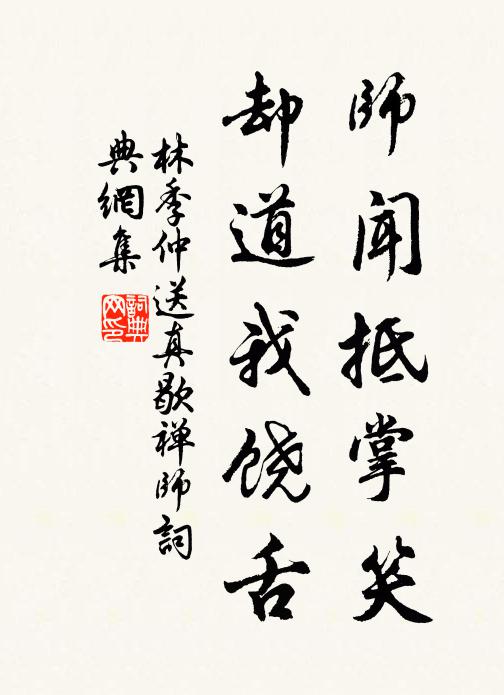 師聞抵掌笑
却道我饶舌
林季仲送真歇禅師詞
典網集
詞典网印